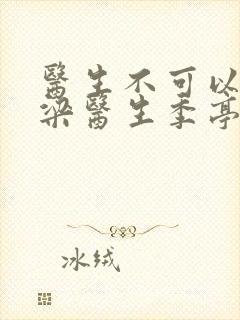 醫生不可以
梁醫生季亭
冰绒